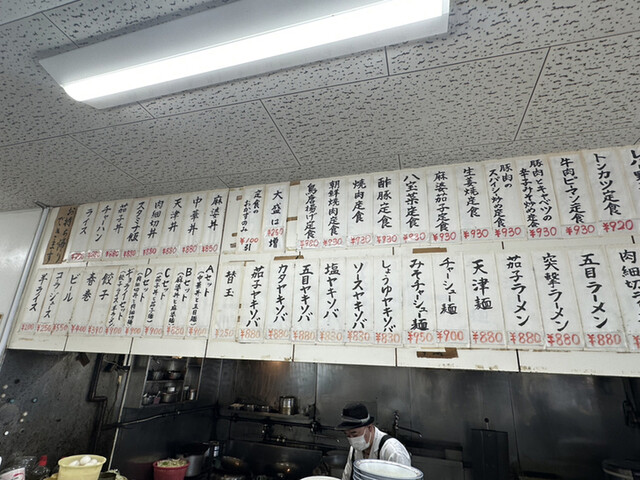 トンカツ定食 ¥920
牛肉ピーマン定食 ¥930
豚肉とキャベツの辛子みそ炒め定食 ¥930
豚肉のスパイシ炒め定食 ¥930
生姜焼定食 ¥930
麻婆茄子定食 ¥930
八宝菜定食 ¥930
酢豚定食 ¥930
焼肉定食 ¥930
朝鮮焼肉定食
鳥唐揚げ定食
大盛は 増
定食のおかずのみ ¥100引
麻婆丼 ¥850
中華丼
天津丼
肉細切丼
スタミナ飯
茄子丼
チャーハン
ライス
肉細切
五目ラーメン ¥880
¥880
茄子ラーメン ¥880
天津麺 ¥880
チャーシュー麺 ¥900
みそチャーシュー麺 ¥950
しょうゆヤキソバ ¥830
ソースヤキソバ ¥830
塩ヤキソバ ¥830
五目ヤキソバ ¥880
カタヤキソバ ¥880
茄子ヤキソバ ¥880
替玉
Aセット
Bセット
Cセット
Dセット
ギョウザセット
餃子
春巻
ビール
コーラ ジュース
半ライス